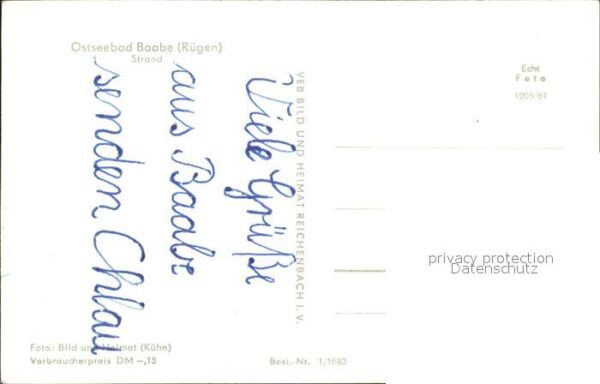 Ostseebad Baabe (Rügen)
Strand
Viele Grüße
aus Baabe
senden
VEB BILD UND HEIMAT REICHENBACH I. V.
Echt
Foto
1206/61
privacy protection
Datenschutz
Foto: Bild und Heimat (Kühn)
Verbraucherpreis DM -,15
Best.-Nr. 1/1683